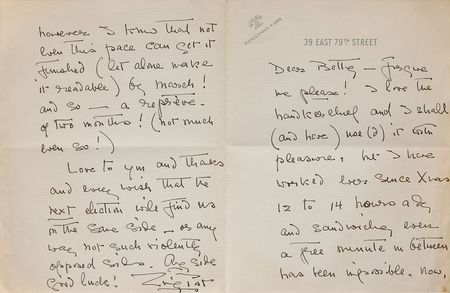 RHINELANDER
39 EAST 79TH STREET
Dear Betty — forgive
me please! I love the
handkerchief and I shall
(and have) use(d) it with
pleasure, but I have
worked ever since Xmas
12 to 14 hours a day
and sandwiching even
a free minute in between
has been impossible. Now,
however I know that not
even this pace can get it
finished (let alone make
it readable) by March!
and so — a reprieve -
of two months! (not much
even so!)
Love to you and thanks
and every wish that the
next election will find us
on the same side — or any
way not such violently
opposed sides. Any side
Good luck!